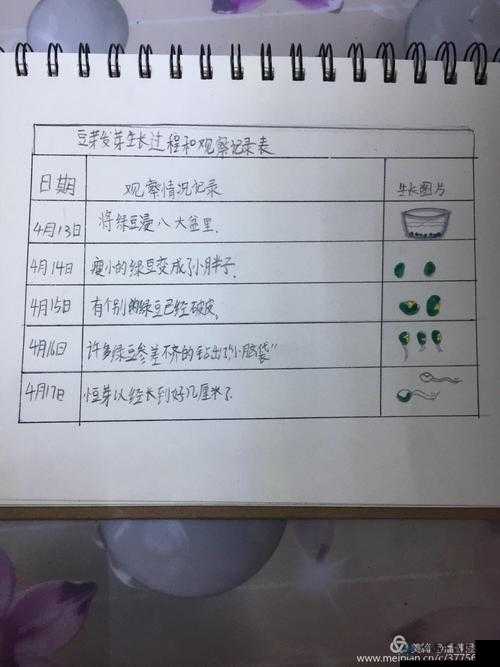 豆芽发芽生长过程和观察记录表
日期 观察情况记录 生长图片
4月13日 将绿豆浸八大盆里.
4月14日 瘦小的绿豆变成了小胖子.
4月15日 有个别的绿豆已经破皮.
4月16日 许多绿豆参差不齐的钻出了"小脑袋"
4月17日 豆芽以经长到好几厘米了.
www.meipian.cn/c/37756